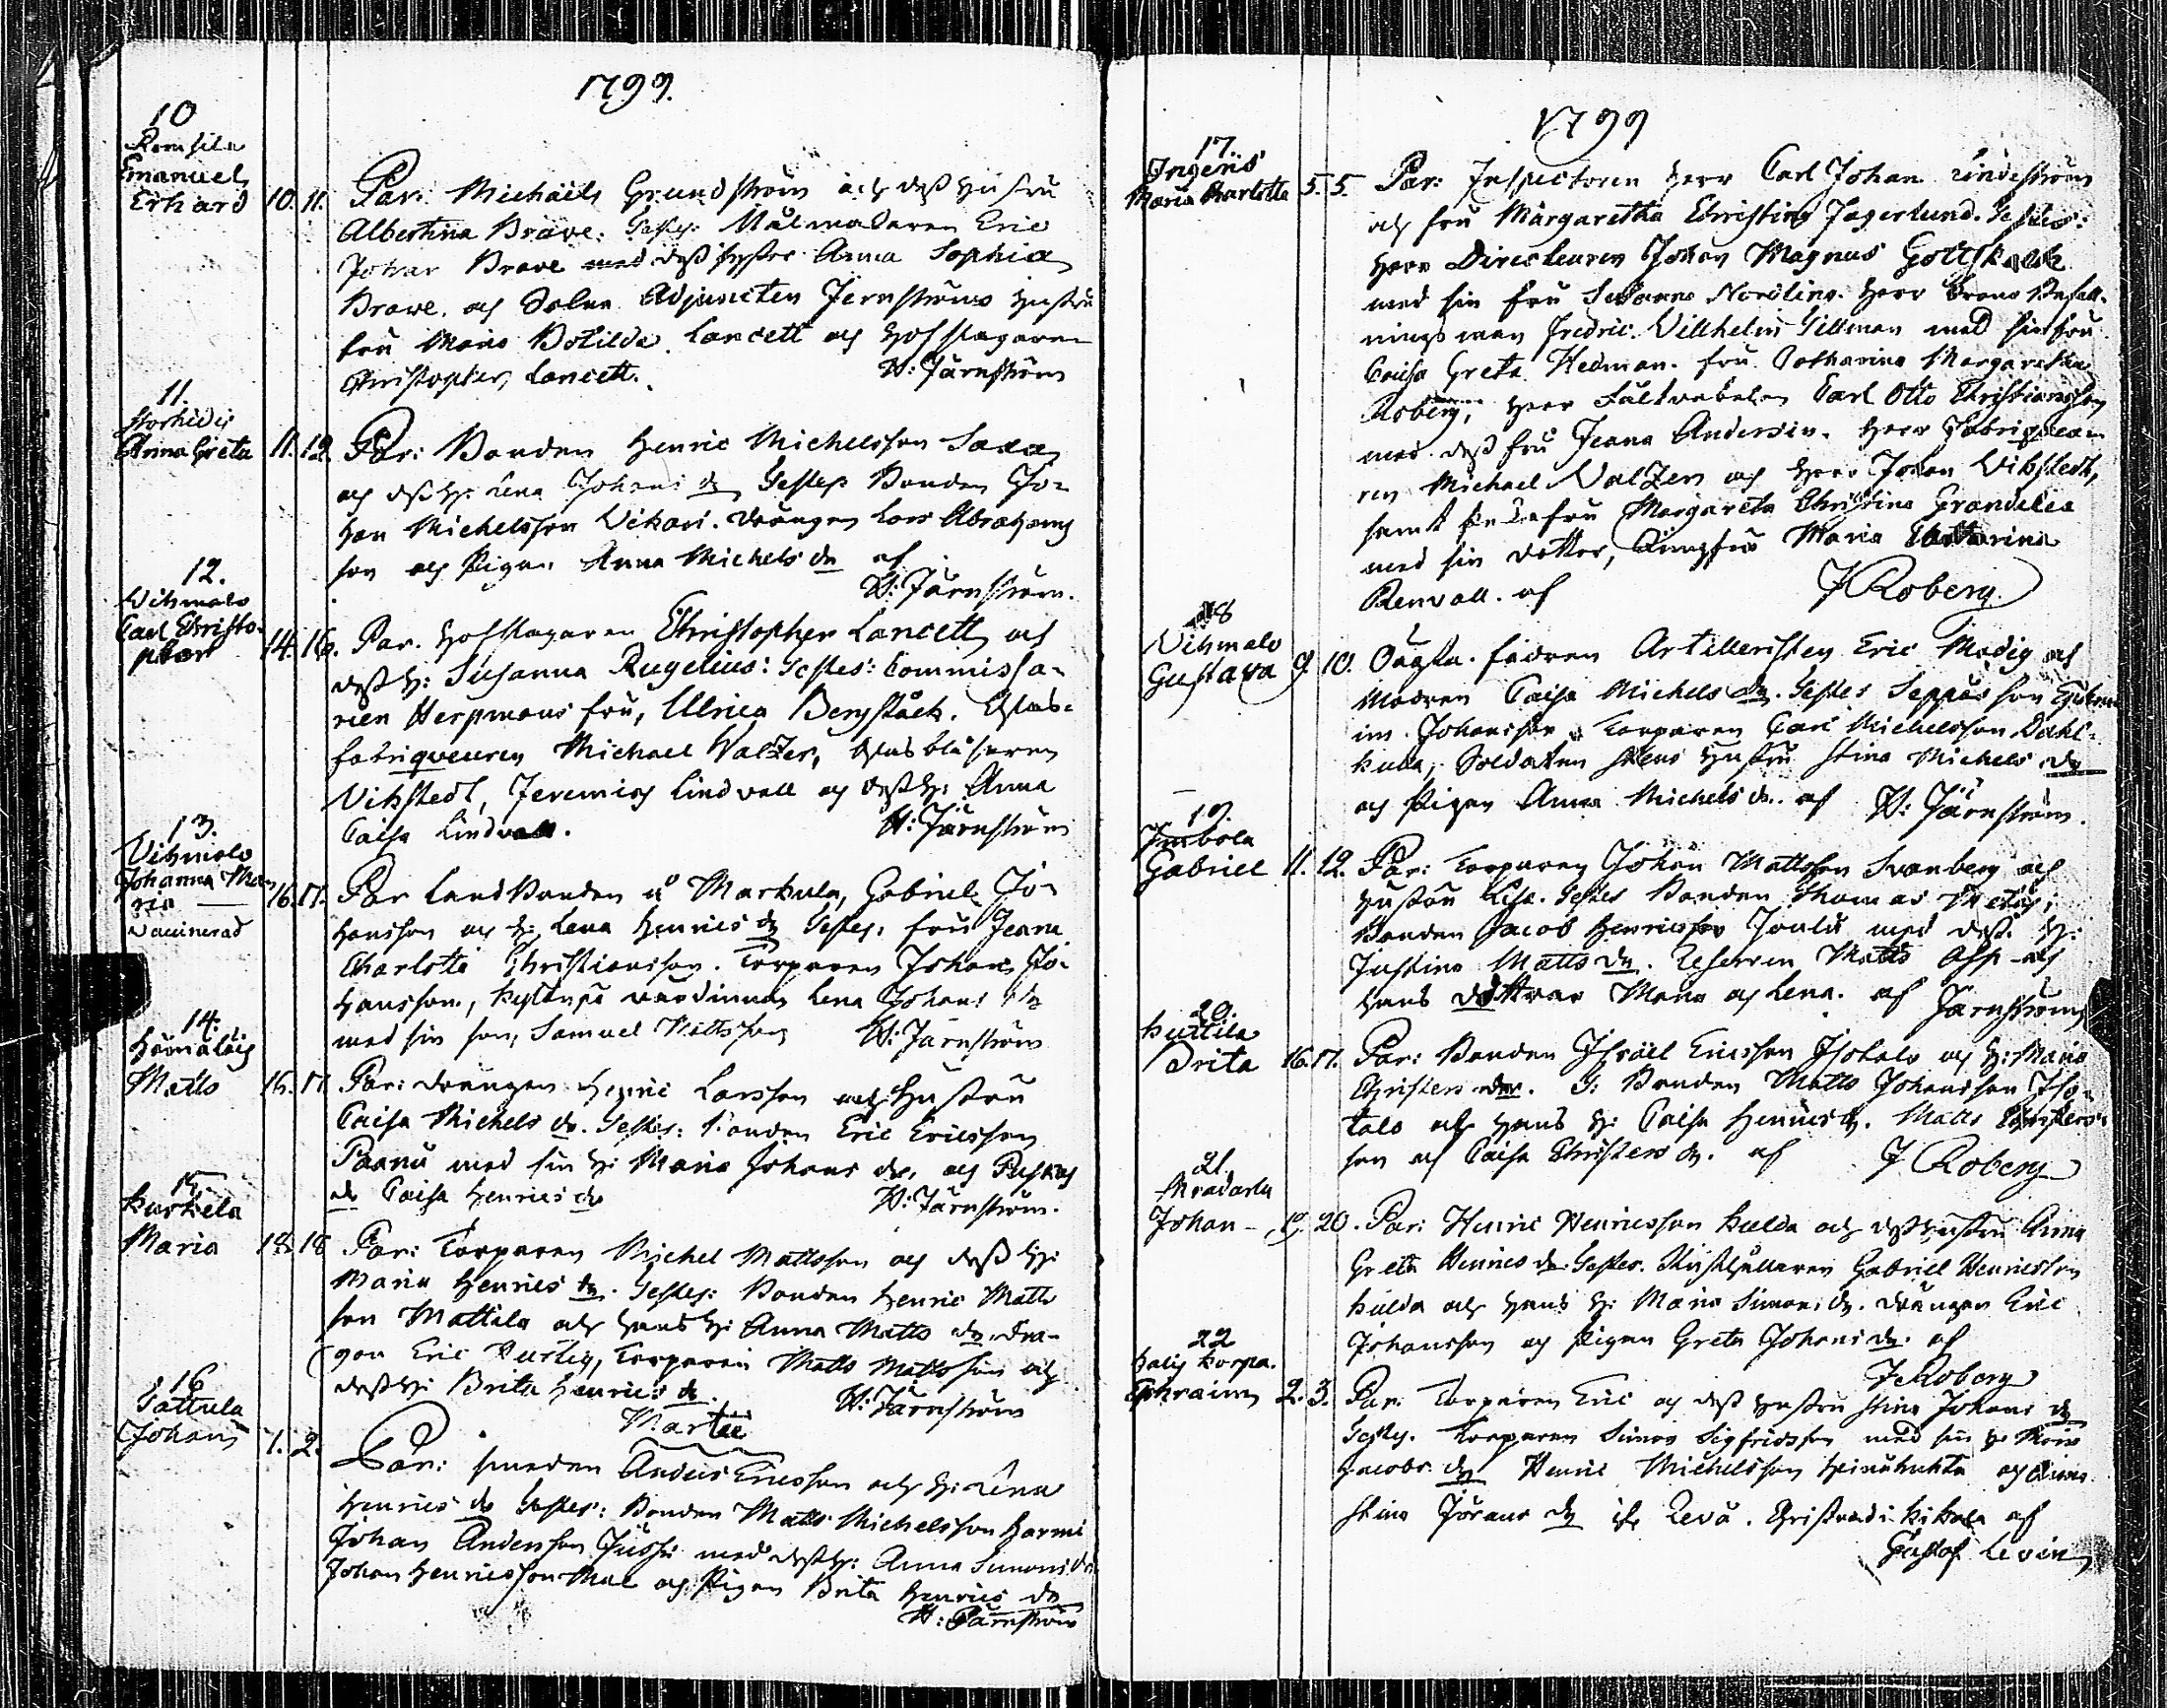 1799.
10
Emanuel
Erhard 10. 11. Par: Michaels Grundström och dess hustru
Albertina Brawe. Testes: Målmadaren Eric
Johan Brawe med dess syster Anna Sophia
Brawe. och Adjuncten Jernströms hustru
fru Maria Botilda Lancett och Hofslagaren
Christopher Lancett.
W: Järnström
11.
Anna Greta 11. 12. Par: Bonden Henric Michelsson Saxa
och dess h: Lena Johans dr Testes Bonden Jo-
han Michelsson Wikari. drängen Lars Abrahams
son och Pigan Anna Michels dr af
W: Järnström.
12.
Wihmalo
Carl Christo-
pher 14. 16. Par. Hofslagaren Christopher Lancett och
dess h: Susanna Rugelius: Testes: Commissa-
rien Herpmans fru, Ulrica Bergståck. Glas-
fabriqveuren Michael Walzer, Glasblåsaren
Vikstedt, Jeremias Lindvall och dess h: Anna
Caisa Lindvall.
W: Järnström
13.
Wihmalo
Johanna Ma-
ria — 16. 17. Par Landbonden å Markula, Gabriel Jo-
vaccinerad
hansson och h: Lena Henrics dr Testes: fru Jeana
Charlotta Christiansson. Torparen Johan Jo-
hansson, värdinnan Lena Johans dr
med sin son, Samuel Mattsson W: Järnström
14.
Matts 16. 17. Par: drängen Henric Larsson och Hustru
Caisa Michels dr. Testes: Bonden Eric Ericsson
Paanu med sin h: Maria Johans dr, och
dr Caisa Henrics dr
W: Järnström.
15
Kurkela
Maria 18. 18 Par: Torparen Michel Mattsson och dess h:
Maria Henrics dr. Testes: Bonden Henric Matts
son Mattila och hans h: Anna Matts dr. Dra-
gon Eric Hurtig, Torparen Matts Mattsson och
dess h: Brita Henrics dr.
W: Järnström
Martii
16
Tattula
Johan 1. 2. Par: smeden Anders Ericsson och h: Lena
Henrics dr Testes: Bonden Matts Michelsson Harmi
Johan Andersson Jussi med dess h: Anna Simons dr
Johan Henricsson och Pigan Brita Henrics dr
W: Järnström
1799
17.
Ingeris
Maria Charlotta 5. 5. Par: Inspectoren Herr Carl Johan Lindeström
och fru Margaretha Christina Jagerlund. Testes:
Herr Directeuren Johan Magnus Gottskalck
med sin fru Susanna Nordling. Herr Crono Befall-
nings man Fredric Villhelm Gillman med sin fru
Caisa Greta Hedman. fru Catharina Margaretha
Roberg, Herr Fältväbelen Carl Otto Christiansson
med dess fru Jeana Andersin. Herr Fabriqveu-
ren Michael Walzer och Herr Johan Vikstedt,
samt fru Margareta Christina Grandelia
med sin dotter, Jungfru Maria Catharina
Renvall. af
J Roberg.
18
Wihmalo
Gustava 9. 10. Oägta. fadren Artilleristen Eric Modig och
Modren Caisa Michels dr. Testes Seppäs son
im Johansson Torparen Carl Michelsson Dahl-
kulla, Soldaten Stens hustru Stina Michels dr
och Pigan Anna Michels dr. af W: Järnström.
19.
Jmbola
Gabriel 11. 12. Par: Torparen Johan Mattsson Svanberg och
hustru Lisa. Testes Bonden Thomas
Bonden Jacob Henricsson Jouki med dess h:
Justina Matts dr. Reserven Matts Asp och
hans döttrar Maria och Lena. af Järnström
20.
Kuttila
Brita 16. 17. Par: Bonden Israel Ericsson Isotalo och h: Maria
Christers dr. T: Bonden Matts Johansson Iso-
talo och hans h: Caisa Henrics dr. Matts Christers-
son och Caisa Christers dr. af J Roberg
21.
Johan — 19. 20. Par: Henric Henricsson Kulda och dess hustru Anna
Greta Henrics dr. Testes. Gabriel Henricsson
Kulda och hans h: Maria Simons dr. drängen Eric
Johansson och Pigan Greta Johans dr. af
J Roberg
22
Ephraim 2. 3. Par: Torparen Eric och dess hustru Stina Johans dr
Testes. Torparen Simon Sigfridsson med sin h: Maria
Jacobs dr Henric Michelsson och
Stina Jörans dr
af
Gustof Levin